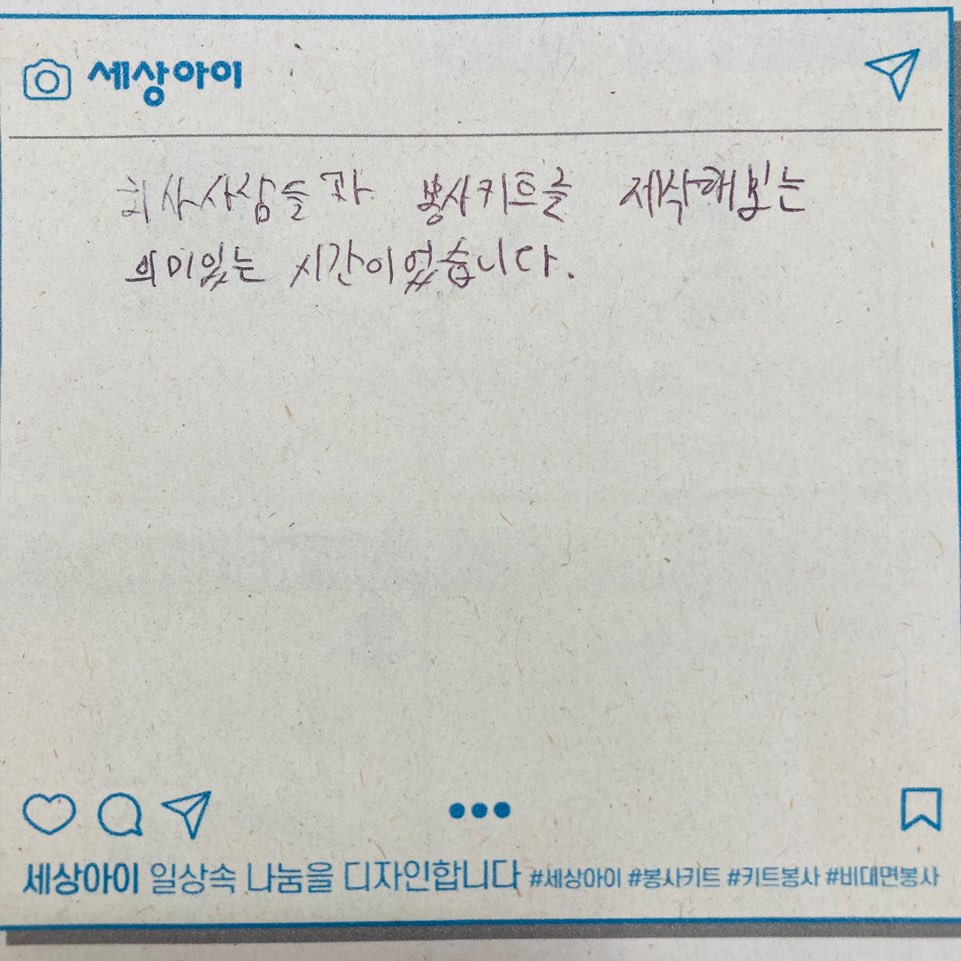 세상아이
회사사람들과 봉사키트를 제작해보는
의미있는 시간이었습니다.
세상아이 일상속 나눔을 디자인합니다 #세상아이 #봉사키트 #키트봉사 #비대면봉사